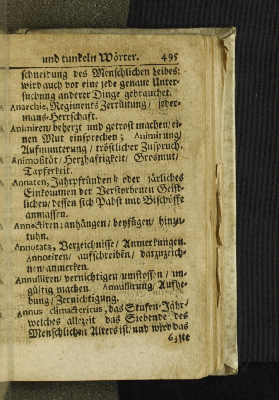 und tunckeln Wörter. 495
schneidung des Menschlichen Leibes:
wird auch vor eine jede genaue Unter-
suchung anderer Dinge gebrauchet.
Anarchie, Regiments Zerrüttung / jeder-
mans-Herrschaft.
Animiren / behertzt und getrost machen / ei-
nen Mut einsprechen; Animirung /
Aufmunterung / tröstlicher Zuspruch.
Animosität / Hertzhaftigkeit / Grosmut /
Tapferkeit.
Annaten, Jahrpfründen / oder järliches
Einkommen der Verstorbenen Geist-
lichen / dessen sich Pabst und Bischöffe
anmassen.
Annectiren: anhängen / beyfügen / hinzu-
tuhn.
Annotata, Verzeichnisse / Anmerkungen.
Annotiren / aufschreiben / darzuzeich-
nen / anmerken.
Annulliren / vernichtigen / umstossen / un-
gültig machen. Annullirung / Aufhe-
bung / Zernichtigung.
Annus climactericus, das Stufen-Jahr /
welches allezeit das Siebende des
Menschlichen Alters ist / und wird das
63ste